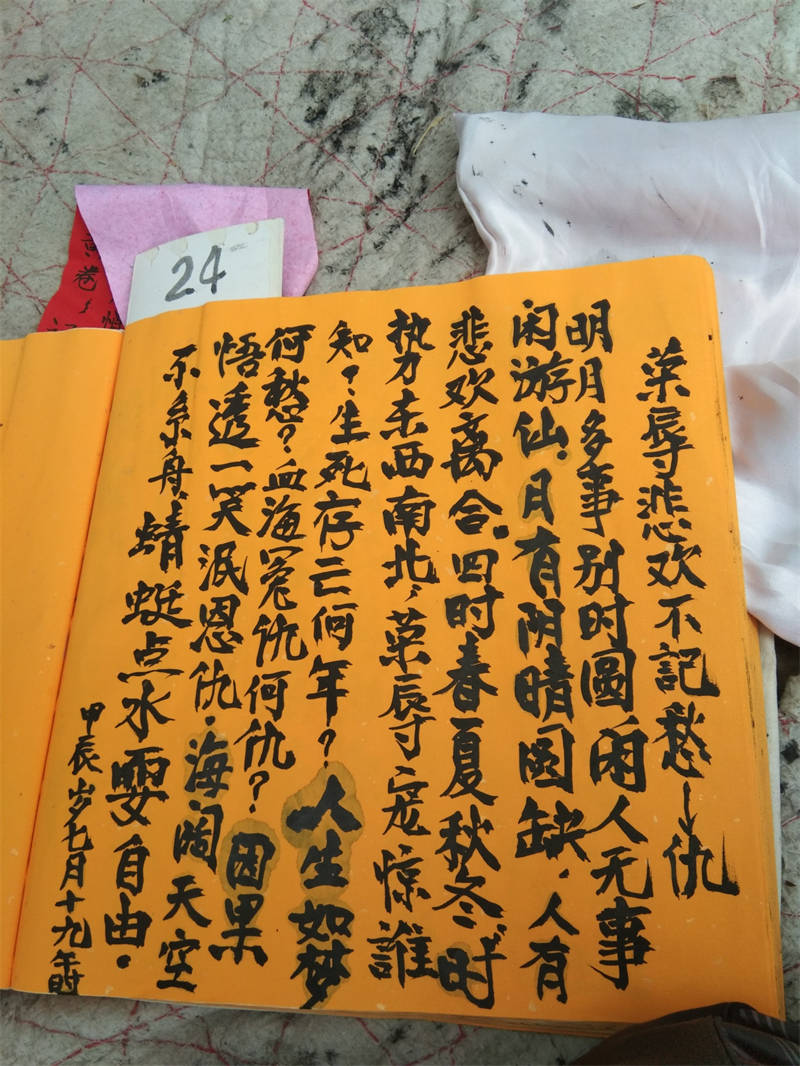 荣辱悲欢不記愁与仇
明月多事别时圆闲人无事
闲游仙.月有阴晴圆缺.人有
悲欢离合.四时春夏秋冬,时
势东西南北,荣辱寵惊誰
知?生死存亡何年?人生如梦
何愁?血海冤仇何仇?因果
悟透一笑泯恩仇.海阔天空
不系舟.蜻蜓点水要自由.
甲辰岁七月十九午时
24